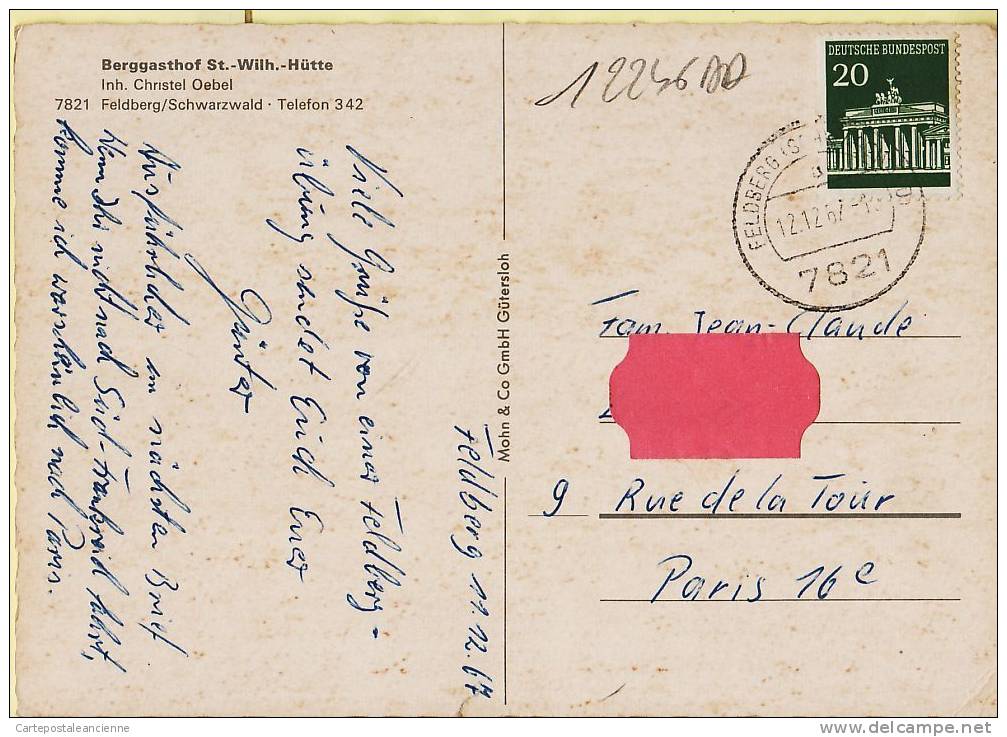 Berggasthof St.-Wilh.-Hütte
Inh. Christel Oebel
7821 Feldberg/Schwarzwald · Telefon 342
12246 AD
DEUTSCHE BUNDESPOST
20
FELDBERG (S
12.12.67
7821
Feldberg 11.12.67
Viele Grüße von einer Feldberg-
übung sendet Euch Euer
Günter
Ausführlicher im nächsten Brief
Wenn Ihr nicht nach Süd-Frankreich fahrt,
komme ich warscheinlich nach Paris.
Mohn & Co GmbH Gütersloh
Fam. Jean-Claude
9 Rue de la Tour
Paris 16e
Cartepostaleancienne
www.delcampe.net